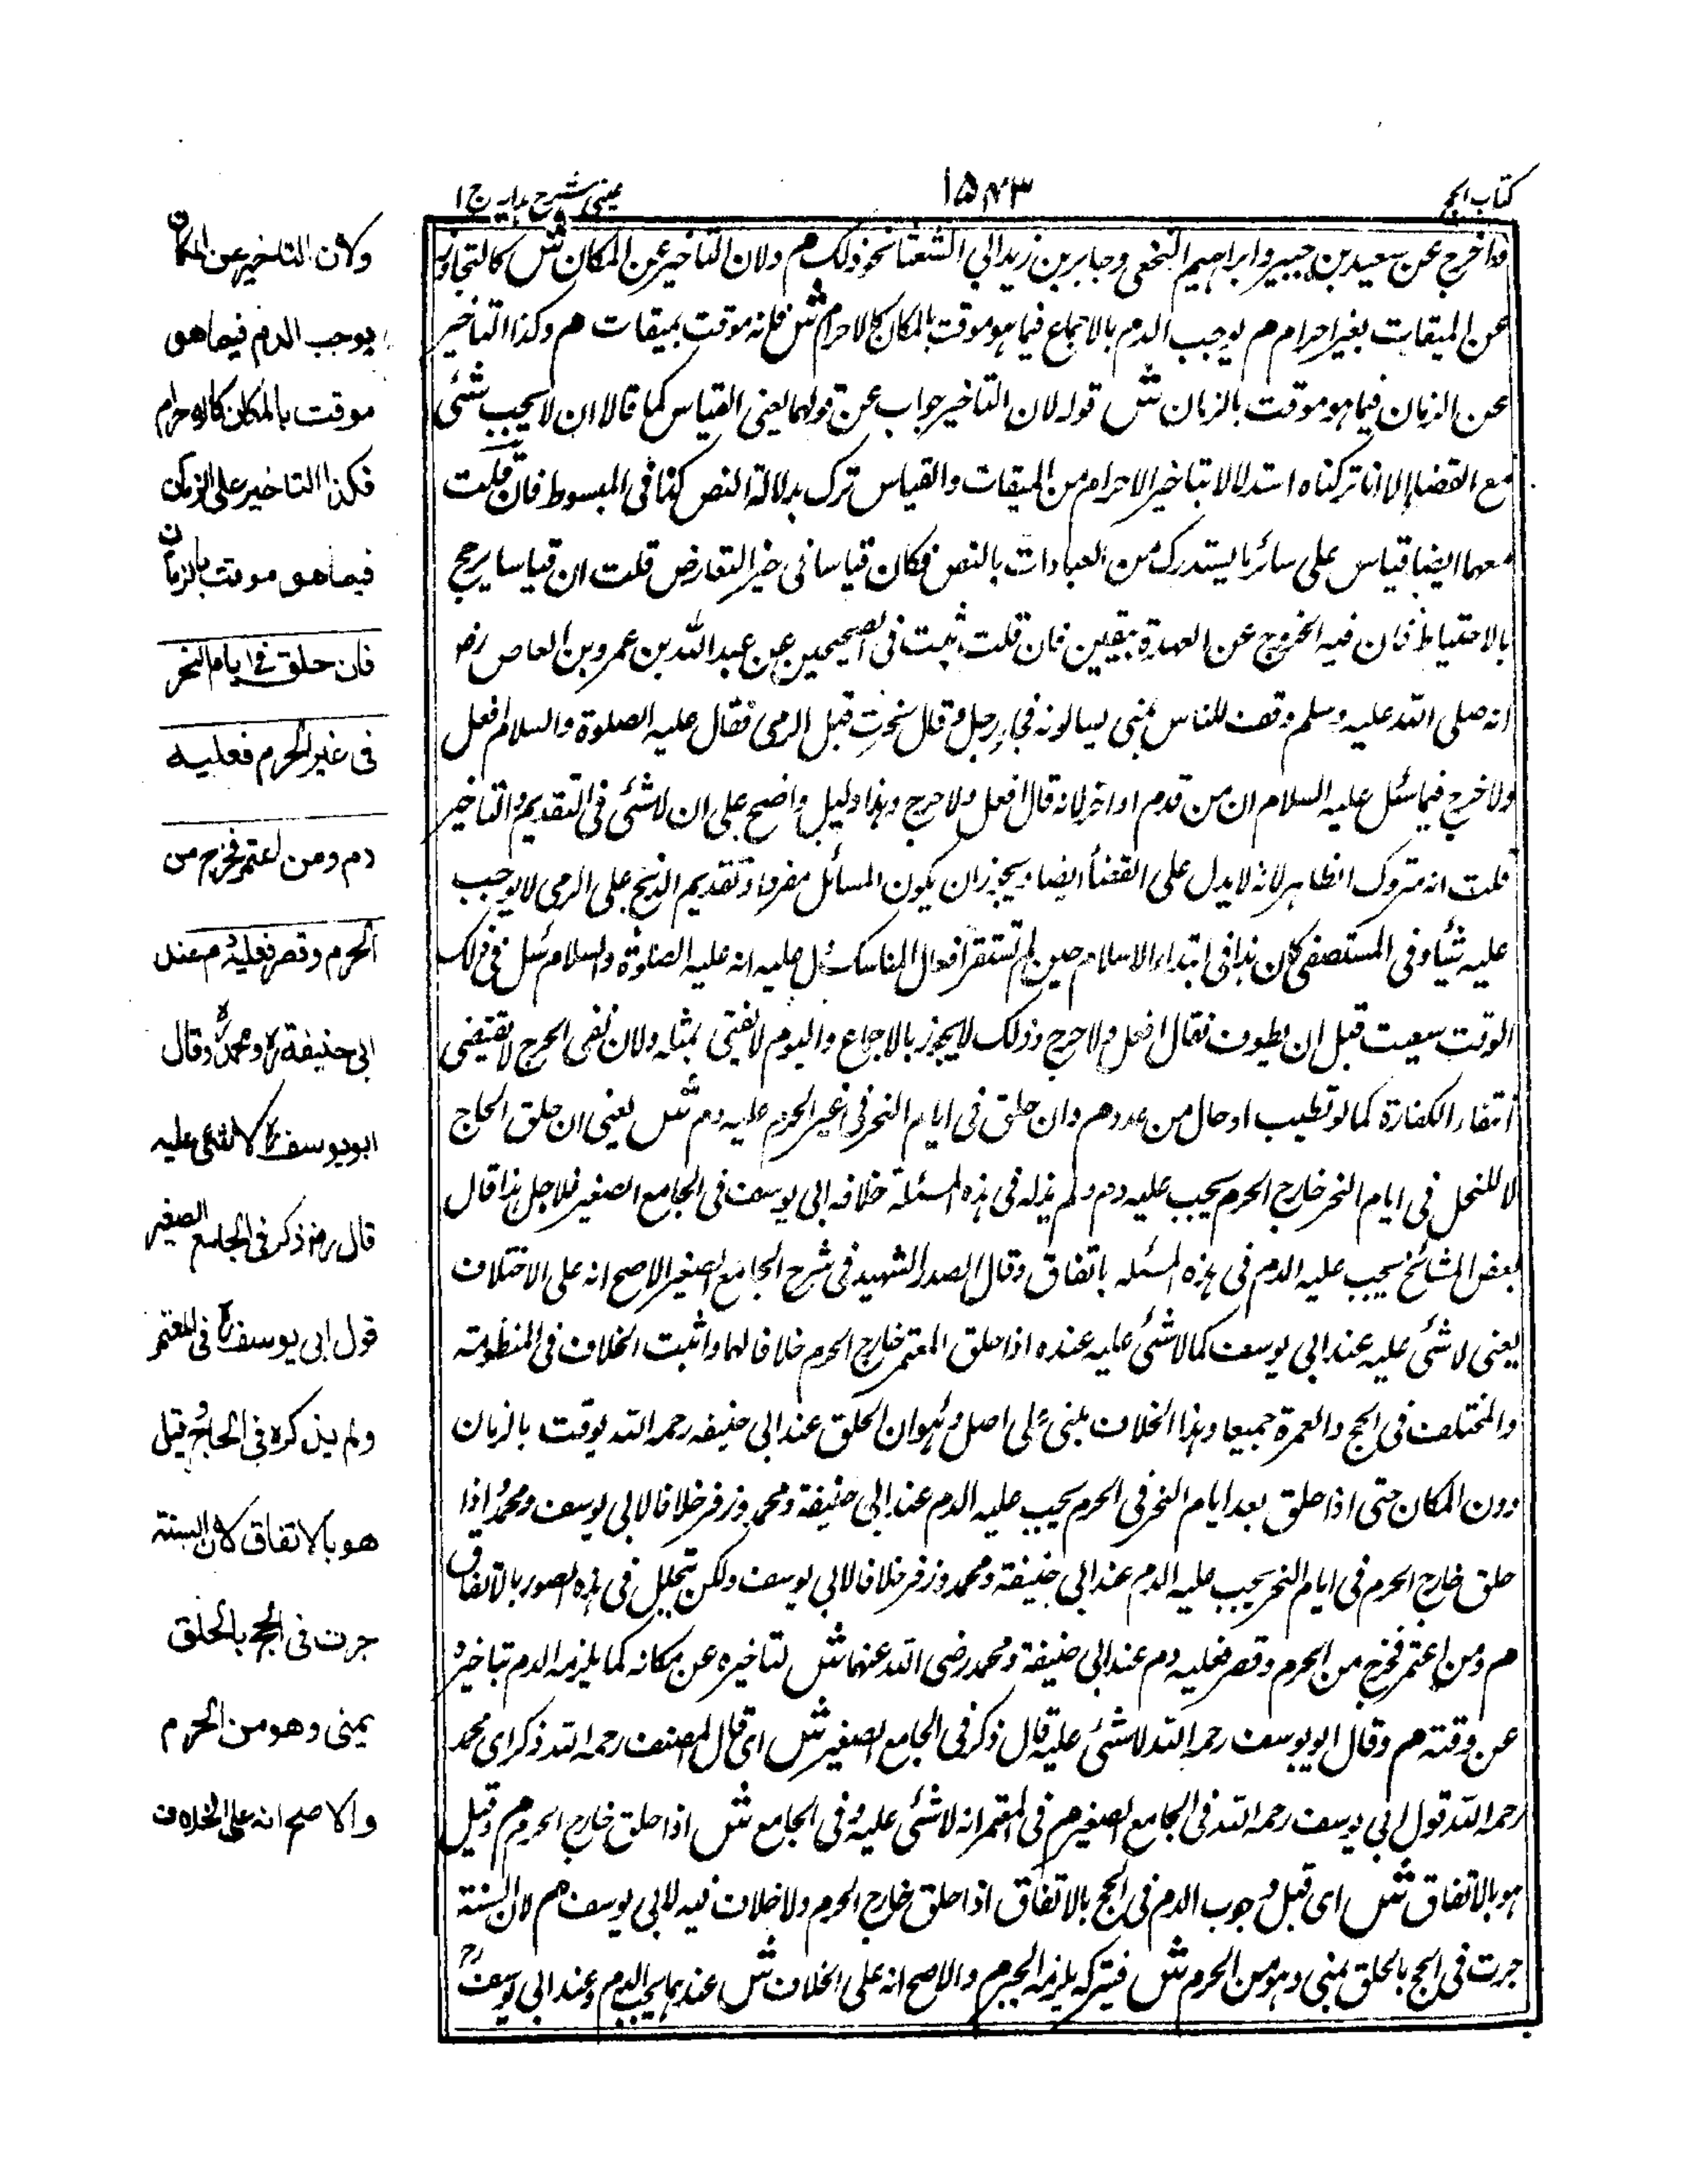 كتاب الحج
١٥٤٣
عينى شرح هدايه ج ١
واخرج عن سعيد بن جبير وابراهيم النخعى وجابر بن زيد ابى الشعثا نحو ذلك م ولان التاخير عن المكان ش كالتجاوز
عن الميقات بغير احرام م يوجب الدم بالاجماع فيما هو موقت بالمكان كالاحرام ش فانه موقت بميقات م وكذا التاخير
عن الزمان فيما هو موقت بالزمان ش قوله لان التاخير جواب عن قولهما يعنى القياس كما قالا ان لا يجب شئى
مع القضا الا انا تركناه استدلالا بتاخير الاحرام من الميقات والقياس ترك بدلالة النص كذا فى المبسوط فان قلت
معهما ايضا قياس على سائر ما يستدرك من العبادات بالنص فكان قياسا فى حيز التعارض قلت ان قياسا يرجح
بالاحتياط فان فيه الخروج عن العهدة بيقين فان قلت ثبت فى الصحيحين عن عبد الله بن عمرو بن العاص رض
انه صلى الله عليه وسلم وقف للناس بمنى يسالونه فجاء رجل وقال نحرت قبل الرمى فقال عليه الصلوة والسلام افعل
ولا حرج فيما سئل عليه السلام ان من قدم او اخر لانه قال افعل ولا حرج وهذا دليل واضح على ان لا شئى فى التقديم والتاخير
قلت انه متروك الظاهر لانه لا يدل على القضأ ايضا ويجوز ان يكون السائل مفردا وتقديم الذبح على الرمى لا يوجب
عليه شئيا وفى المستصفى كان هذا فى ابتداء الاسلام حين لم تستقر افعال المناسك دل عليه انه عليه الصلوة والسلام سئل فى ذلك
الوقت سعيت قبل ان يطوف فقال افعل ولا حرج وذلك لا يجوز بالاجماع واليوم لا يفتى بمثله ولان نفى الحرج لا يقتضى
انتفاء الكفارة كما لو تطيب او حال من عدد م وان حلق فى ايام النحر فى غير الحرم عليه دم ش يعنى ان حلق الحاج
لا للتحلل فى ايام النحر خارج الحرم يجب عليه دم ولم يذكر فى هذه المسئلة خلافه ابى يوسف فى الجامع الصغير فلاجل هذا قال
بعض المشائخ يجب عليه الدم فى هذه المسئله باتفاق وقال الصدر الشهيد فى شرح الجامع الصغير الاصح انه على الاختلاف
يعنى لا شئى عليه عند ابى يوسف كما لا شئى عليه عنده اذا حلق المعتمر خارج الحرم خلافا لهما واثبت الخلاف فى المنظومة
والمختلف فى الحج والعمرة جميعا وهذا الخلاف بنى على اصل وهو ان الحلق عند ابى حنيفه رحمه الله يوقت بالزمان
دون المكان حتى اذا حلق بعد ايام النحر فى الحرم يجب عليه الدم عند ابى حنيفة ومحمد وزفر خلافا لابى يوسف ومحمد اذا
حلق خارج الحرم فى ايام النحر يجب عليه الدم عند ابى حنيفة ومحمد وزفر خلافا لابى يوسف ولكن تحلل فى هذه الصور بالاتفاق
م ومن اعتمر فخرج من الحرم وقصر فعليه دم عند ابى حنيفة ومحمد رضى الله عنهما ش لتاخيره عن مكانه كما يلزمه الدم بتاخيره
عن وقته م وقال ابو يوسف رحمه الله لا شئى عليه قال ذكر فى الجامع الصغير ش اى قال المصنف رحمه الله ذكر اى محمد
رحمه الله قول ابى يوسف رحمه الله فى الجامع الصغير م فى المعتمر انه لا شئى عليه وفى الجامع ش اذا حلق خارج الحرم م وقيل
هو بالاتفاق ش اى قيل وجوب الدم فى الحج بالاتفاق اذا حلق خارج الحرم ولا خلاف فيه لابى يوسف م لان السنة
جرت فى الحج بالحلق بمنى وهو من الحرم ش فبتركه يلزمه الجبر م والاصح انه على الخلاف ش عندهما يجب الدم وعند ابى يوسف رح
ولان التاخير عن المكان
يوجب الدم فيما هو
موقت بالمكان كالاحرام
فكذا التاخير على الزمان
فيما هو موقت بالزمان
فان حلق فى ايام النحر
فى غير الحرم فعليه
دم ومن اعتمر فخرج من
الحرم وقصر فعليه دم عند
ابى حنيفة رح ومحمد رح وقال
ابو يوسف رح لا شئى عليه
قال رض ذكر فى الجامع الصغير
قول ابى يوسف رح فى المعتمر
ولم يذكره فى الحاج وقيل
هو بالاتفاق لان السنة
جرت فى الحج بالحلق
بمنى وهو من الحرم
والاصح انه على الخلاف